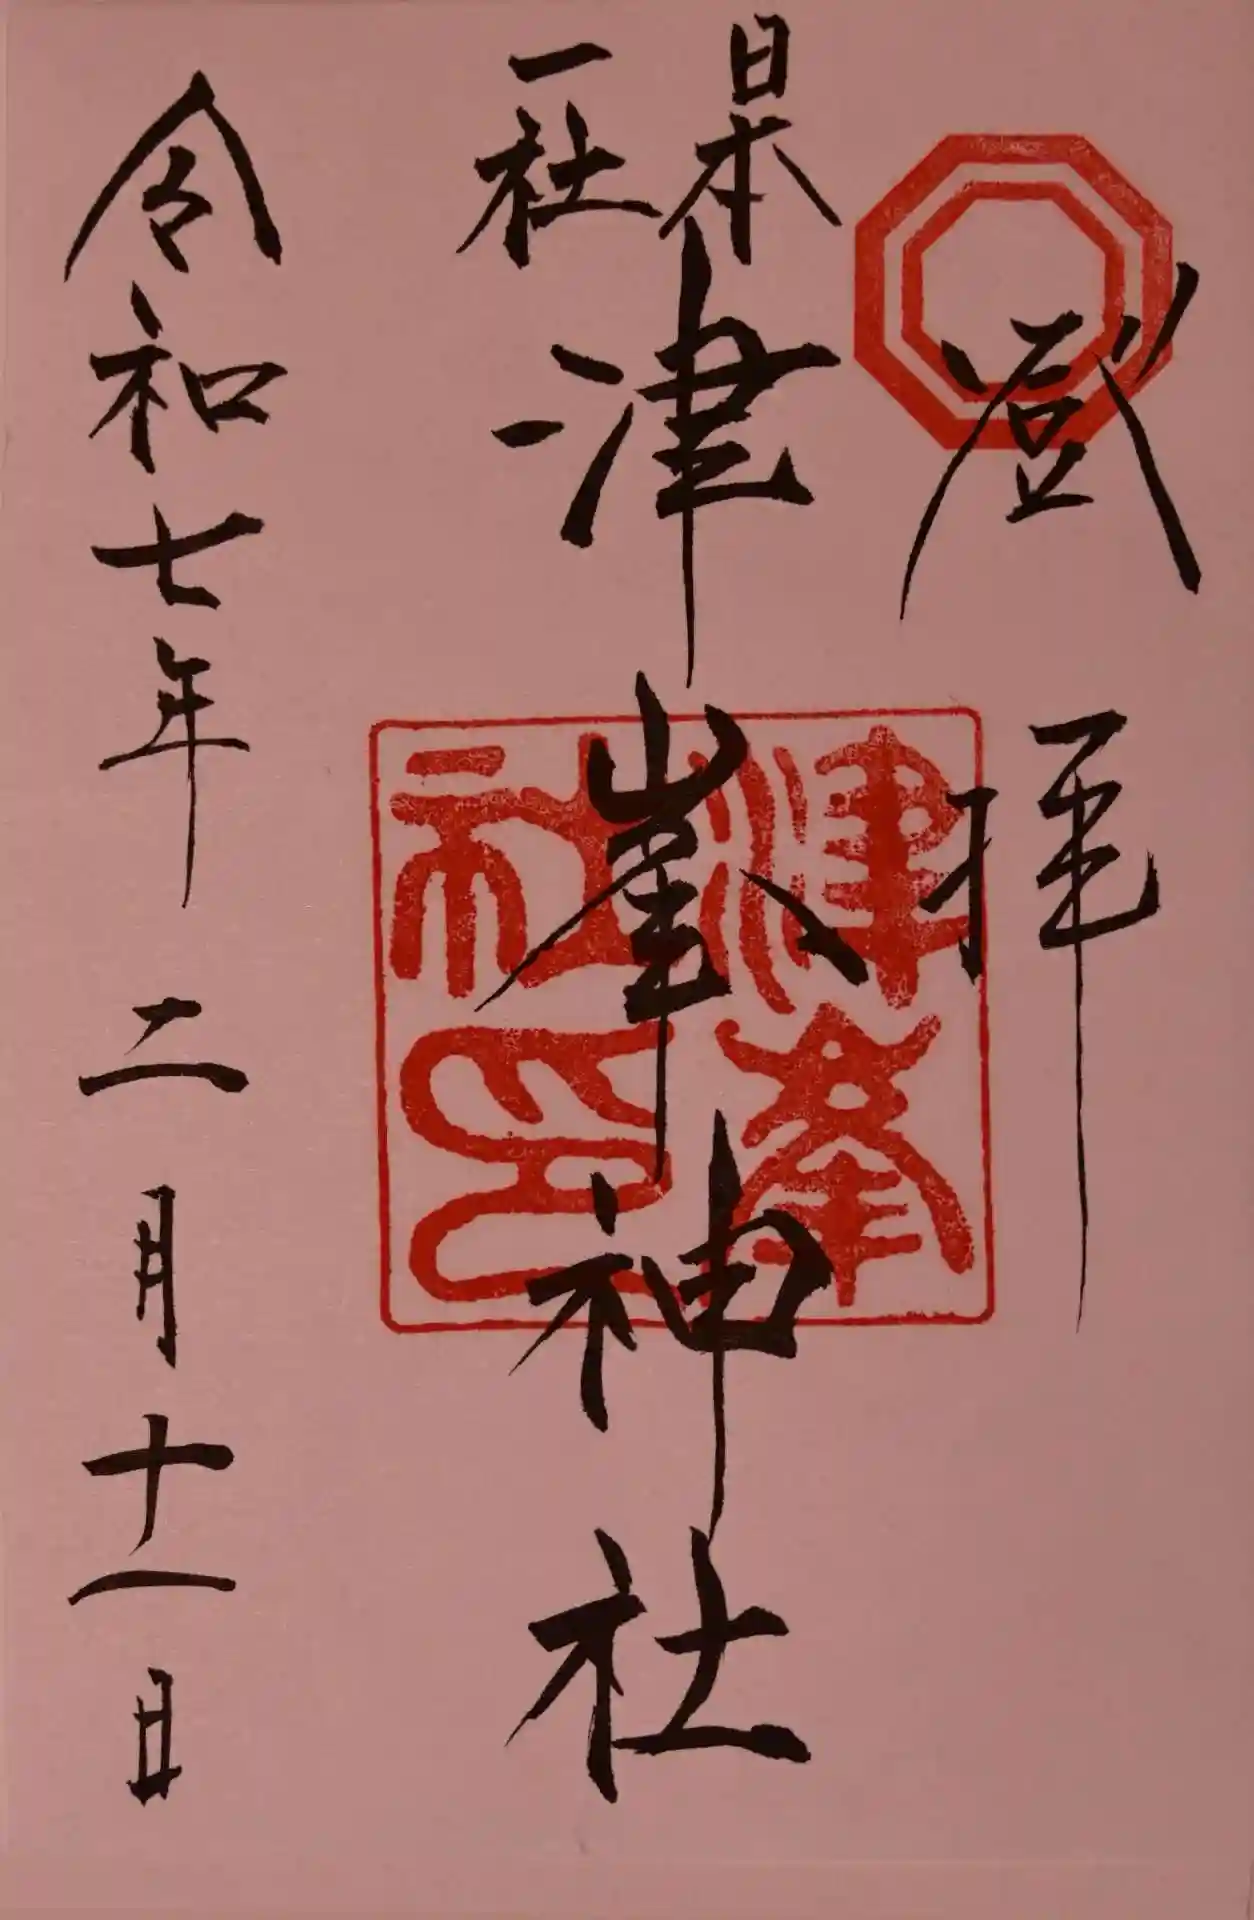 登拝
日本
一社
津峯神社
令和七年二月十一日
津峯
社印